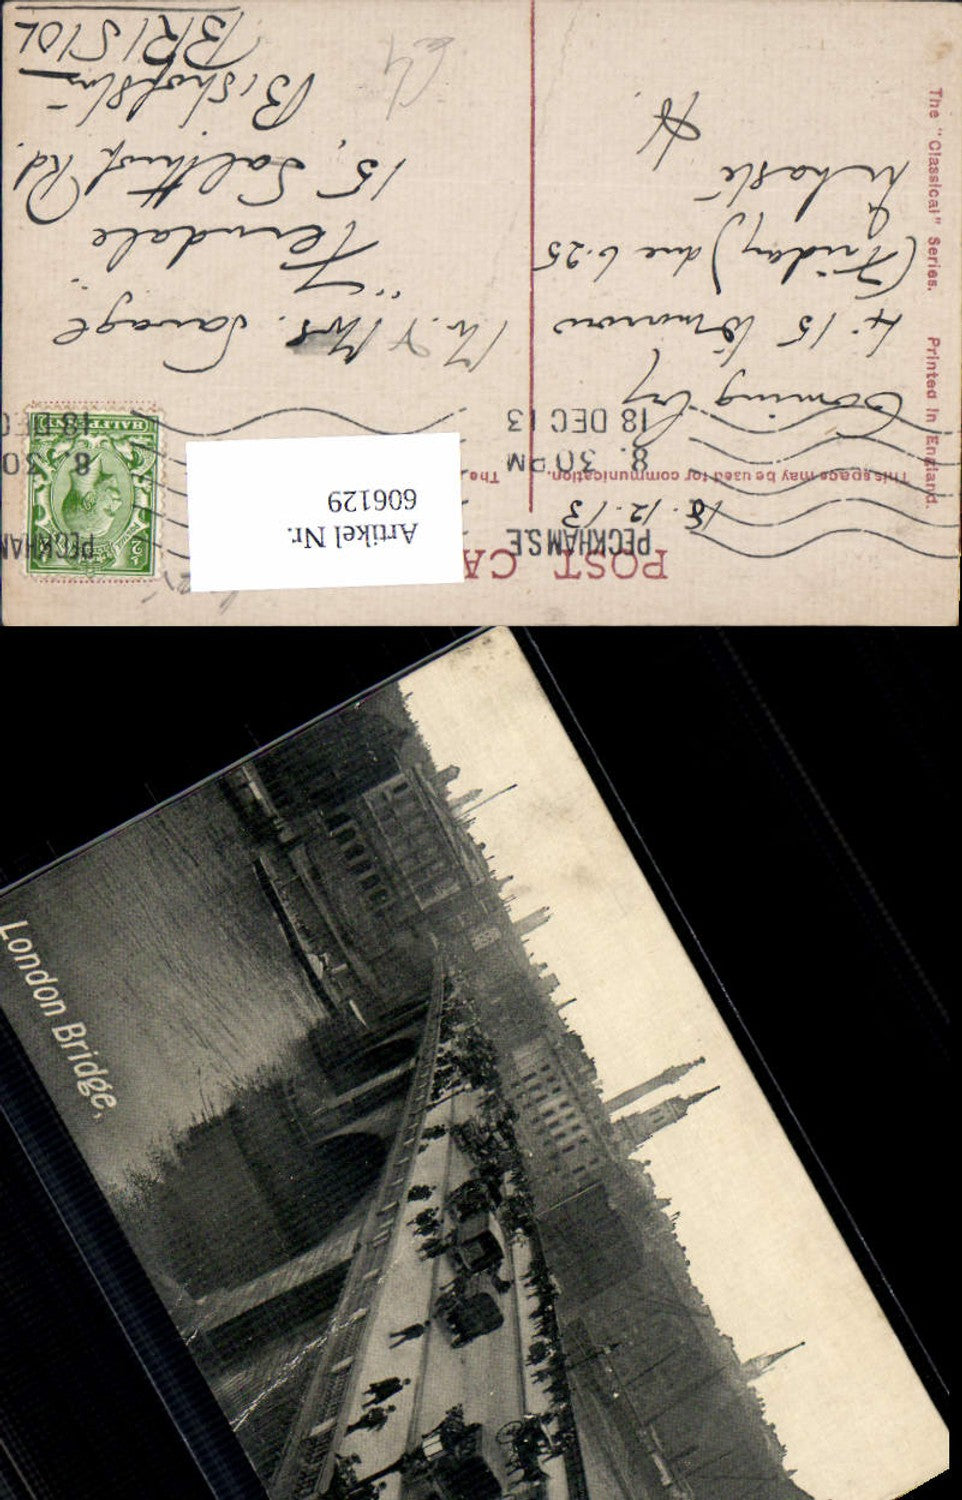 The "Classical" Series. Printed in England.
POST CA
This space may be used for communication.
The
PECKHAM S.E
8. 30 PM
18 DEC 13
PECKHAM
8. 30
18 DEC
HALFPENNY
18.12.13
Coming by
4.15 tomorrow
(Friday) due 6.25
Mr. & Mrs. Savage
"Ferndale"
15, Rd.
Bishopston
BRISTOL
Artikel Nr.
606129
London Bridge.